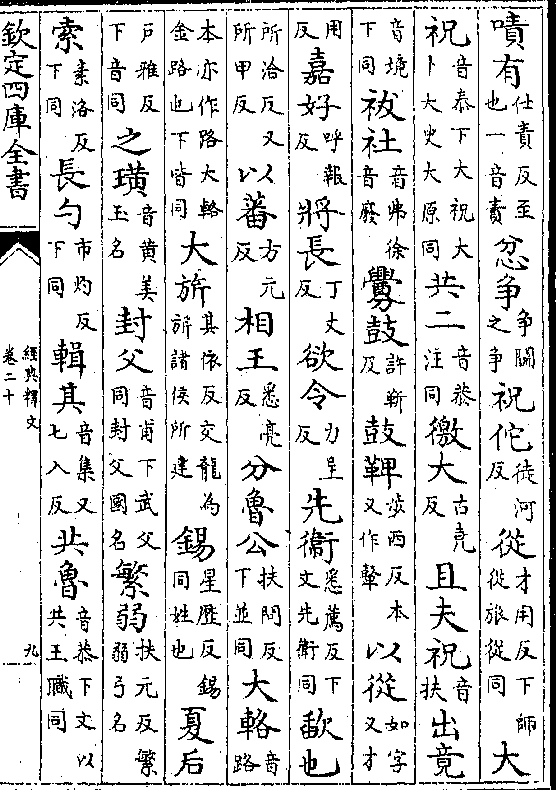 嘖有仕責反至也一音責忿争争鬭之争祝佗徒河反從才用反下師從旅從同大
祝音泰下大祝大卜大史大原同共二音恭注同徼大古堯反且夫祝音扶出竟
音境下同祓社音弗徐音廢釁鼓許靳反鼓鞞歩西反本又作鼙以從如字又才
用反嘉好呼報反將長丁丈反欲令力呈反先衞悉薦反下文先衞同歃也
所洽反又所甲反以蕃方元反相王悉亮反分魯公扶問反下並同大輅音路
本亦作路大輅金路也下皆同大旂其依反交龍為旂諸侯所建錫星歴反錫同姓也夏后
户雅反下音同之璜音黄美玉名封父音甫下武父同封父國名繁弱扶元反繁弱弓名
索素洛反下同長勺市灼反下同輯其音集又七入反共魯音恭下文以共王職同
欽定四庫全書
經典釋文
卷二十
九